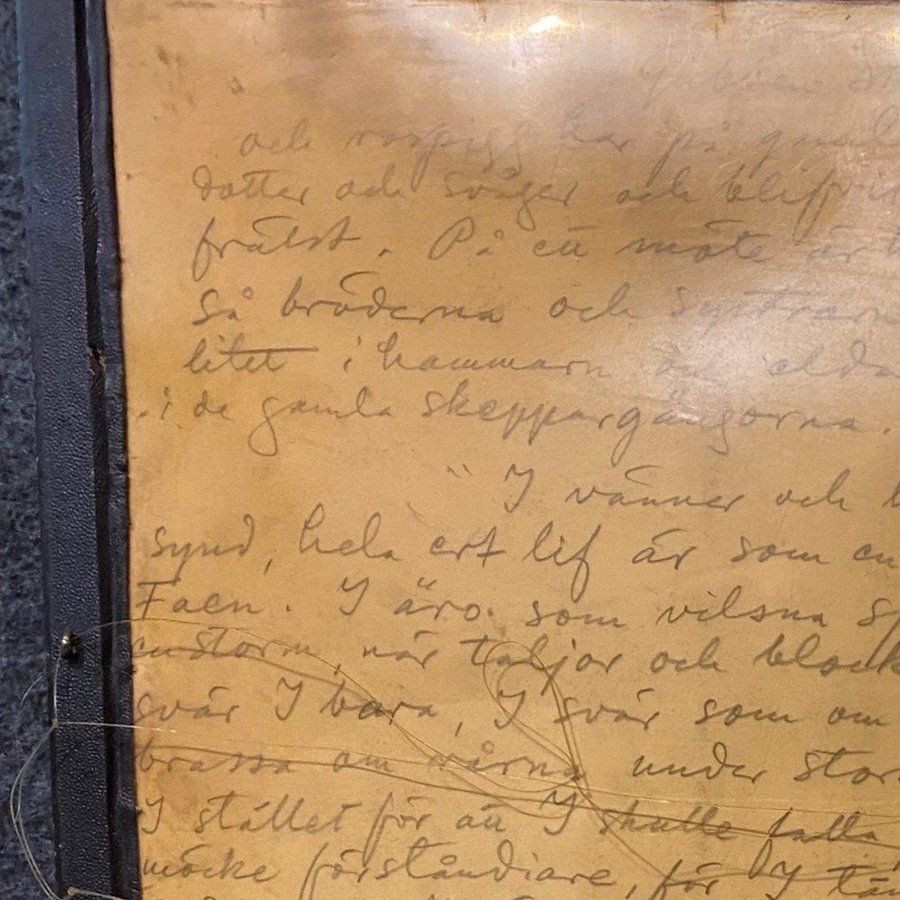 och har på
dotter och svåger och blifvit
frälst. På ett möte är
Så bröderna och systrarna
litet i hammarn och elda
i de gamla skeppargångorna.
" I vänner och
synd, hela ert lif är som en
Faen. I äro som vilsna
när taljor och block
svär I bara, I svär som om
brassa om rårna under stor
I stället för att I skulle falla
möcke förståndiare, för I